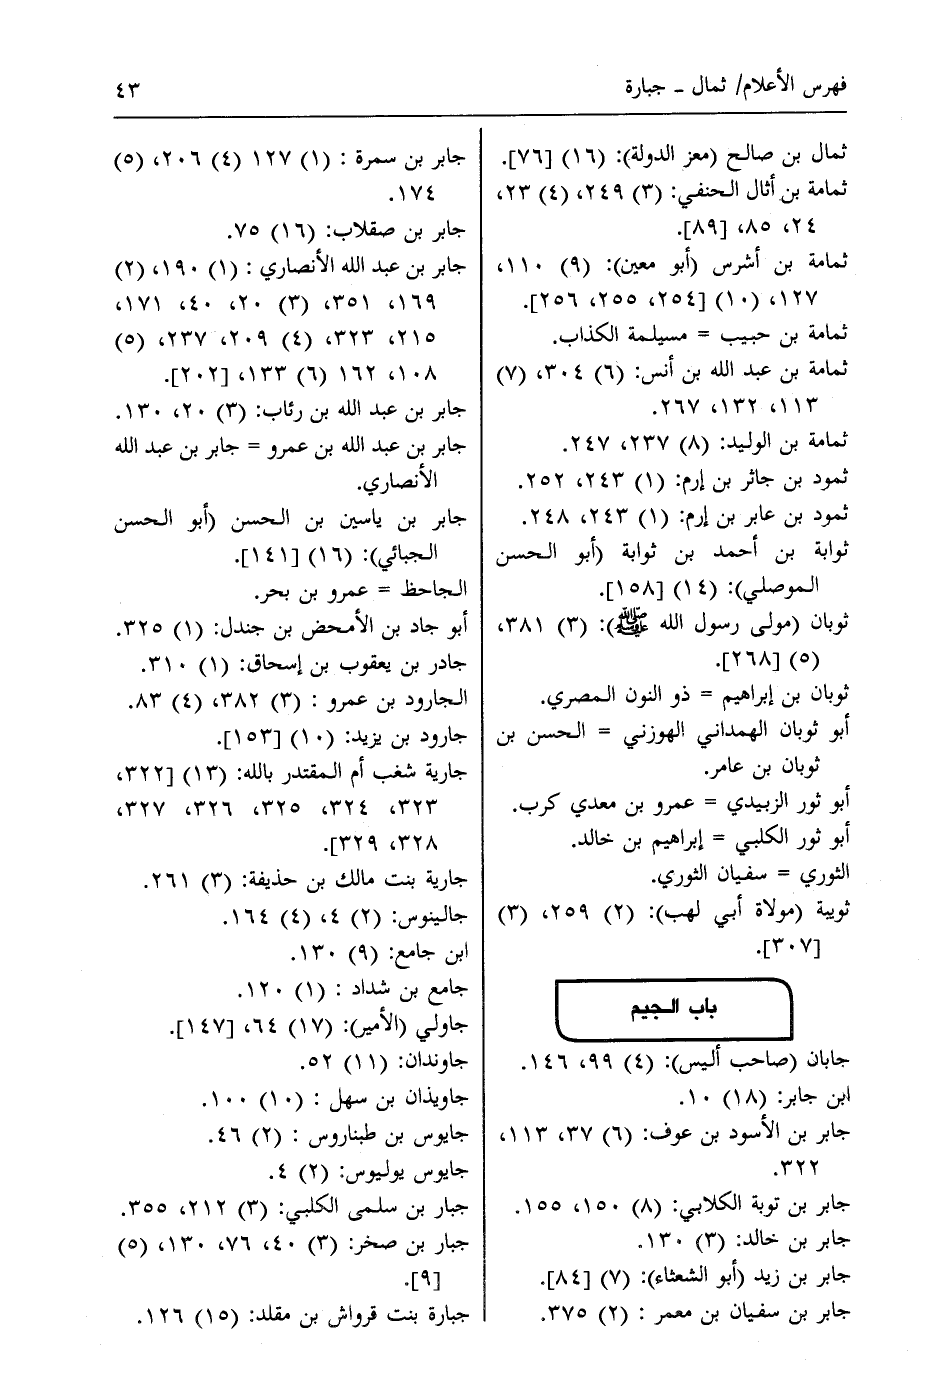 فهرس الأعلام/ ثمال - جبارة
٤٣
ثمال بن صالح (معز الدولة): (١٦) [٧٦].
ثمامة بن أثال الحنفي: (٣) ٢٤٩، (٤) ٢٣،
٢٤، ٨٥، [٨٩].
ثمامة بن أشرس (أبو معين): (٩) ١١٠،
١٢٧، (١٠) [٢٥٤، ٢٥٥، ٢٥٦].
ثمامة بن حبيب = مسيلمة الكذاب.
ثمامة بن عبد الله بن أنس: (٦) ٣٠٤، (٧)
١١٣، ١٣٢، ٢٦٧.
ثمامة بن الوليد: (٨) ٢٣٧، ٢٤٧.
ثمود بن جاثر بن إرم: (١) ٢٤٣، ٢٥٢.
ثمود بن عابر بن إرم: (١) ٢٤٣، ٢٤٨.
ثوابة بن أحمد بن ثوابة (أبو الحسن
الموصلي): (١٤) [١٥٨].
ثوبان (مولى رسول الله ﷺ): (٣) ٣٨١،
(٥) [٢٦٨].
ثوبان بن إبراهيم = ذو النون المصري.
أبو ثوبان الهمداني الهوزني = الحسن بن
ثوبان بن عامر.
أبو ثور الزبيدي = عمرو بن معدي كرب.
أبو ثور الكلبي = إبراهيم بن خالد.
الثوري = سفيان الثوري.
ثويبة (مولاة أبي لهب): (٢) ٢٥٩، (٣)
[٣٠٧].
باب الجيم
جابان (صاحب أليس): (٤) ٩٩، ١٤٦.
ابن جابر: (١٨) ١٠.
جابر بن الأسود بن عوف: (٦) ٣٧، ١١٣،
٣٢٢.
جابر بن توبة الكلابي: (٨) ١٥٠، ١٥٥.
جابر بن خالد: (٣) ١٣٠.
جابر بن زيد (أبو الشعثاء): (٧) [٨٤].
جابر بن سفيان بن معمر : (٢) ٣٧٥.
جابر بن سمرة : (١) ١٢٧ (٤) ٢٠٦، (٥)
١٧٤.
جابر بن صقلاب: (١٦) ٧٥.
جابر بن عبد الله الأنصاري : (١) ١٩٠، (٢)
١٦٩، ٣٥١، (٣) ٢٠، ٤٠، ١٧١،
٢١٥، ٣٢٣، (٤) ٢٠٩، ٢٣٧، (٥)
١٠٨، ١٦٢ (٦) ١٣٣، [٢٠٢].
جابر بن عبد الله بن رئاب: (٣) ٢٠، ١٣٠.
جابر بن عبد الله بن عمرو = جابر بن عبد الله
الأنصاري.
جابر بن ياسين بن الحسن (أبو الحسن
الجبائي): (١٦) [١٤١].
الجاحظ = عمرو بن بحر.
أبو جاد بن الأمحض بن جندل: (١) ٣٢٥.
جادر بن يعقوب بن إسحاق: (١) ٣١٠.
الجارود بن عمرو : (٣) ٣٨٢، (٤) ٨٣.
جارود بن يزيد: (١٠) [١٥٣].
جارية شغب أم المقتدر بالله: (١٣) [٣٢٢،
٣٢٣، ٣٢٤، ٣٢٥، ٣٢٦، ٣٢٧،
٣٢٨، ٣٢٩].
جارية بنت مالك بن حذيفة: (٣) ٢٦١.
جالينوس: (٢) ٤، (٤) ١٦٤.
ابن جامع: (٩) ١٣٠.
جامع بن شداد : (١) ١٢٠.
جاولي (الأمير): (١٧) ٦٤، [١٤٧].
جاوندان: (١١) ٥٢.
جاويذان بن سهل : (١٠) ١٠٠.
جايوس بن طبناروس : (٢) ٤٦.
جايوس يوليوس: (٢) ٤.
جبار بن سلمى الكلبي: (٣) ٢١٢، ٣٥٥.
جبار بن صخر: (٣) ٤٠، ٧٦، ١٣٠، (٥)
[٩].
جبارة بنت قرواش بن مقلد: (١٥) ١٢٦.